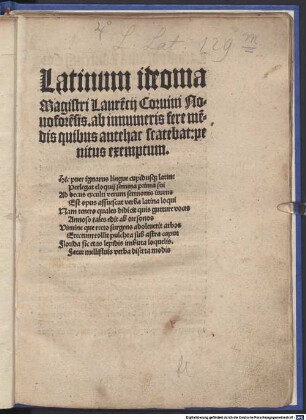 L. Lat. 229
Latinum ideoma
Magistri Laurētij Coruini No
uoforēsis. ab innumeris fere mē
dis quibus antehac scatebat: pe
nitus exemptum.
Hic puer ignarus lingue cupidusq̃ latine
Perlegat eloquij semina prima sui
Ad decus excultū verum sermonis
Est opus assuescat verba latina loqui
Nam teneris quales didicit quis gutture voces
Annoso tales edit ab ore sonos
Vimine que recto surgens adoleuerit arbos
Erectum tollit pulchra sub astra caput
Florida sic etas lepidis imbuta loquelis
verba diserta modis